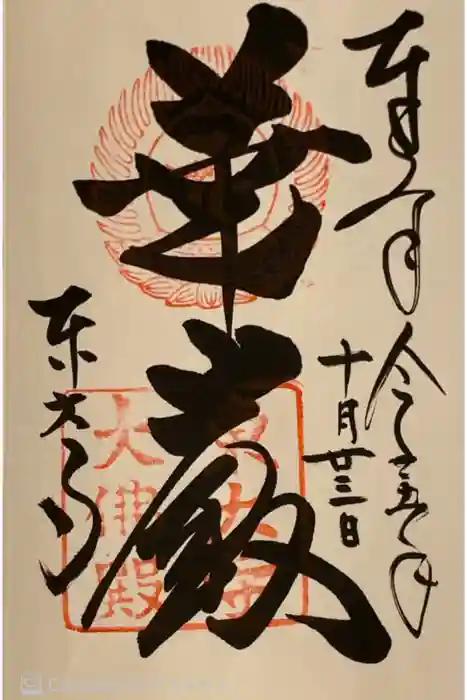 奉拝
令和五年
十月廿三日
華厳
東大寺
東大寺
大佛殿